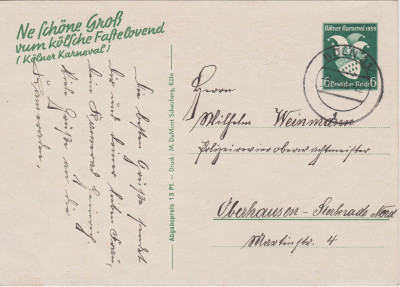 Ne schöne Groß
vum kölsche Fastelovend
(Kölner Karneval)
Die besten Grüße sendet
Dir und deiner lieben Frau,
Dein Kamerad Heinrich.
Viele Grüße an die
Kameraden.
Abgabepreis 15 Pf. – Druck: M. DuMont Schauberg, Köln
Kölner Karneval 1939
6 Deutsches Reich 6
Herrn
Wilhelm Weinmann
Polizeirevieroberwachtmeister
Oberhausen - Sterkrade Nord
Martinstr. 4